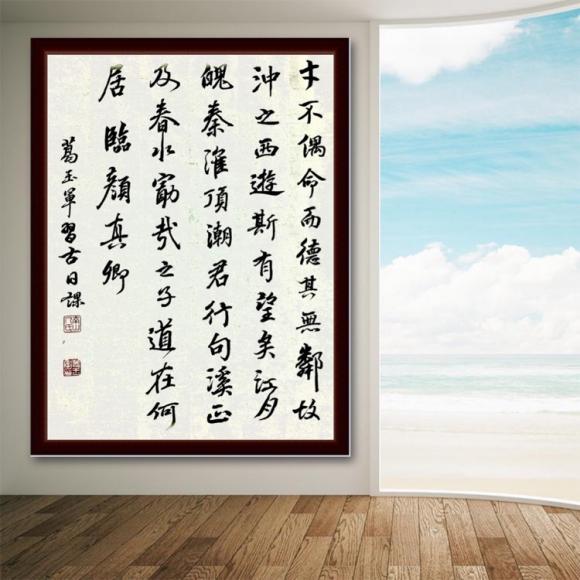 才不偶命而德其無鄰故
沖之西遊斯有望矣江月
魄秦淮頂潮君行句溪正
及春水勖哉之子道在何
居臨顏真卿
葛玉軍習古日課